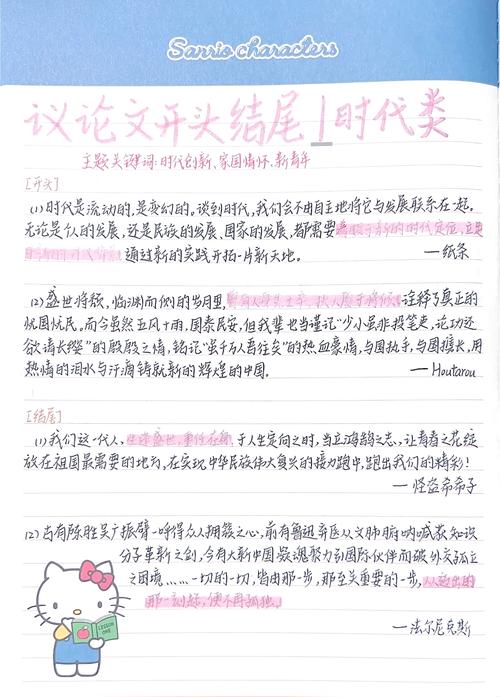 Sanrio characters
议论文开头结尾|时代类
主题关键词:时代创新、家国情怀、新青年
[开头]
(1)时代是流动的,是变幻的。谈到时代,我们会不由自主地将它与发展联系在一起。
无论是个人的发展,还是民族的发展、国家的发展,都需要着眼于新的时代定位,立足
通过新的实践开拓一片新天地。 —纸条
(2)盛世将倾,临渊而侧的岁月里, 诠释了真正的
忧国忧民。而今虽然五风十雨,国泰民安,但我辈也当谨记“少小虽非投笔吏,论功还
欲请长缨”的殷殷之情,铭记“虽千万人吾往矣”的热血豪情,与国执手,与国偕长,用
热情的泪水与汗滴铸就新的辉煌的中国。 —Houtarou
[结尾]
(1)我们这一代人,生逢盛世,重任在肩。于人生定向之时,当立鸿鹄之志、让青春之花绽
放在祖国最需要的地方,在实现中华民族伟大复兴的接力跑中,跑出我们的精彩!
—怪盗希希子
(2)古有陈胜吴广振臂一呼得众人拥簇之心,前有鲁迅弃医从文肺腑呐喊获知识
分子革新之剑,今有大新中国凝魂聚力与国际伙伴而破外交孤立
之困境……一切的一切,皆由那一步,那至关重要的一步,从迈出的
那一刻起,便不再孤独。
—法尔尼克斯
LESSON
ONE